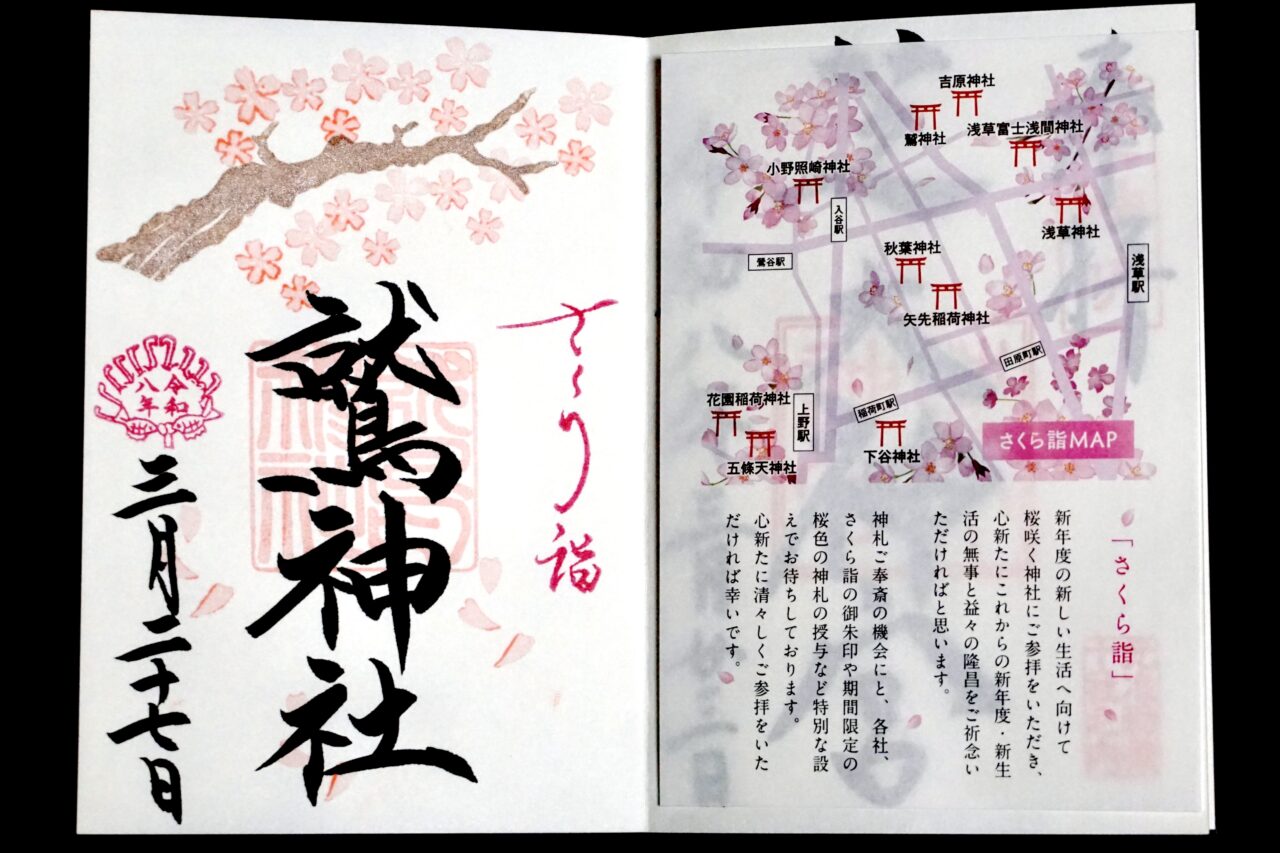 さくら詣
鷲神社
令和
八年
三月二十七日
吉原神社
鷲神社
浅草富士浅間神社
小野照崎神社
入谷駅
浅草神社
秋葉神社
浅草駅
鶯谷駅
矢先稲荷神社
田原町駅
花園稲荷神社
上野駅
稲荷町駅
五條天神社
下谷神社
さくら詣MAP
「さくら詣」
新年度の新しい生活へ向けて
桜咲く神社にご参拝をいただき、
心新たにこれからの新年度・新生
活の無事と益々の隆昌をご祈念い
ただければと思います。
神札ご奉斎の機会にと、各社、
さくら詣の御朱印や期間限定の
桜色の神札の授与など特別な設
えでお待ちしております。
心新たに清々しくご参拝をいた
だければ幸いです。